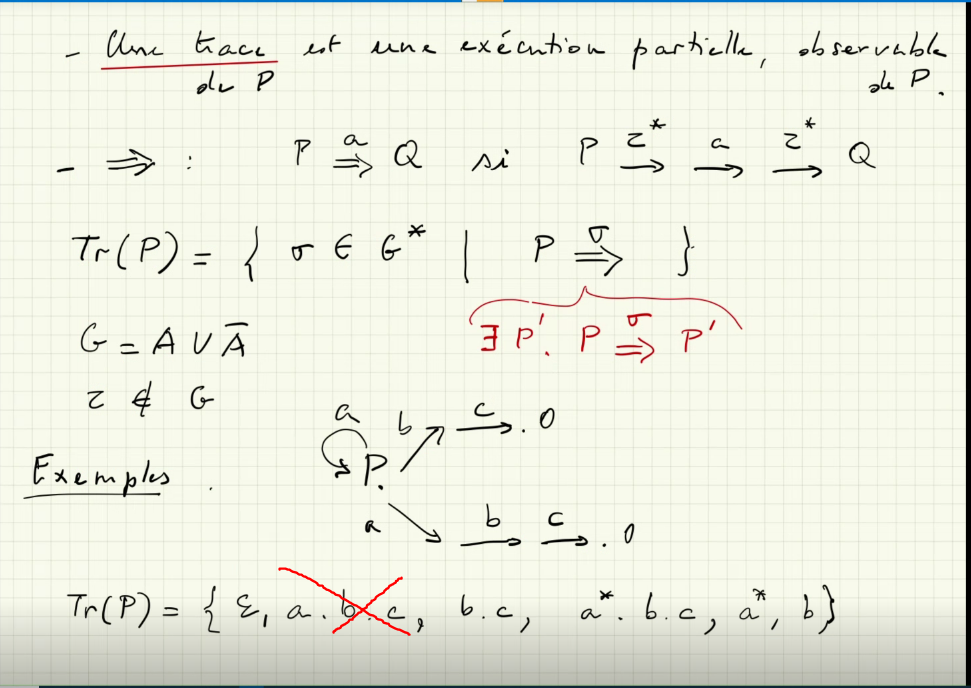 - Une trace est une exécution partielle, observable
de P de P.
- ⇒ : P =a⇒ Q si P τ*→ a→ τ*→ Q
Tr(P) = { σ ∈ G* | P =σ⇒ }
G = A ∪ Ā
∃ P'. P =σ⇒ P'
τ ∉ G
a b c . 0
Exemples . P.
a b c . 0
Tr(P) = { ε, a.b.c, b.c, a*.b.c, a*, b}